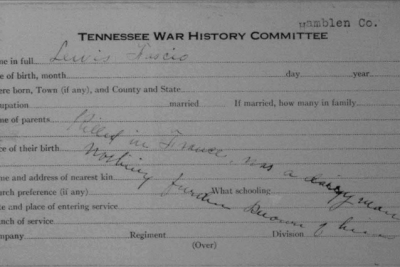 Hamblen Co.
TENNESSEE WAR HISTORY COMMITTEE
me in full Lewis
e of birth, month day year
ere born, Town (if any), and County and State
upation married If married, how many in family
me of parents
ce of their birth
Killed in France, was a dairy man
me and address of nearest kin
Nothing further known of him
urch preference (if any) What schooling
te and place of entering service
nch of service
mpany Regiment Division
(Over)